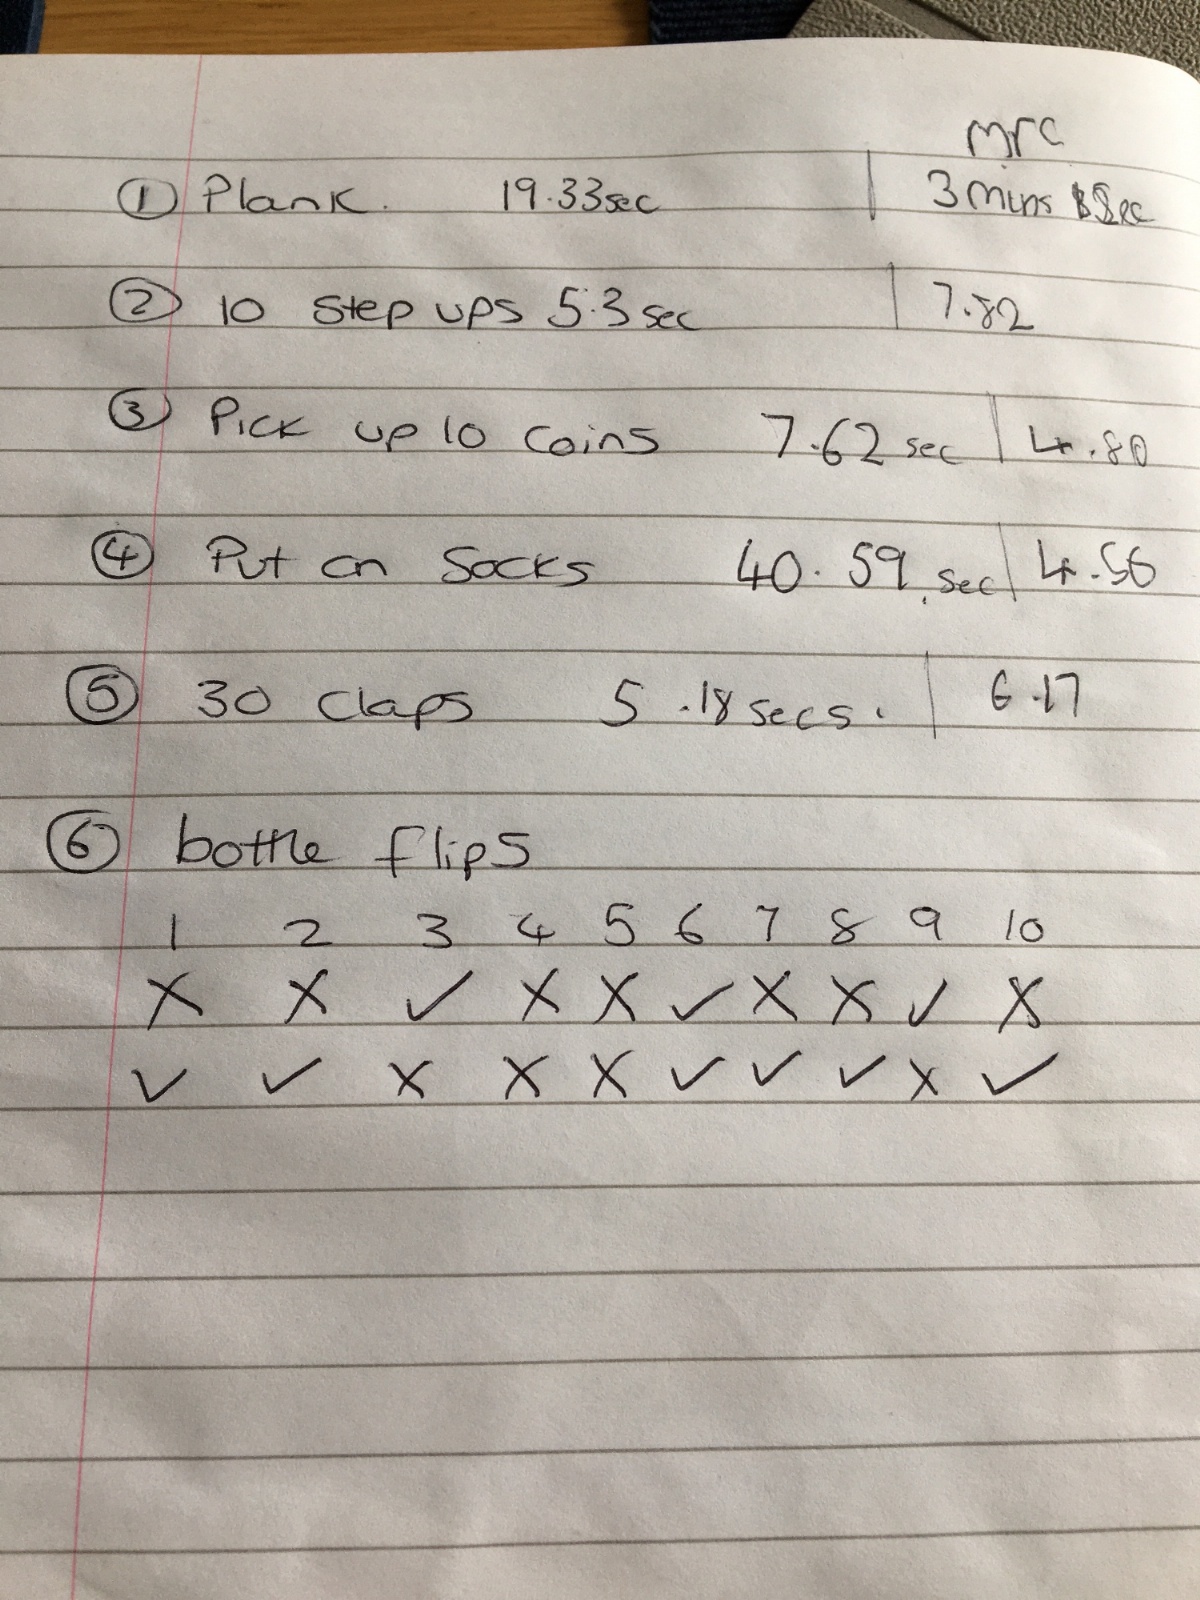 mrc
① Plank. 19.33sec | 3 mins 8sec
② 10 step ups 5.3 sec | 7.82
③ Pick up 10 coins 7.62 sec | 4.80
④ Put on Socks 40.59 sec | 4.56
⑤ 30 claps 5.18 secs. | 6.17
⑥ bottle flips
1 2 3 4 5 6 7 8 9 10
X X ✓ X X ✓ X X ✓ X
✓ ✓ X X X ✓ ✓ ✓ X ✓